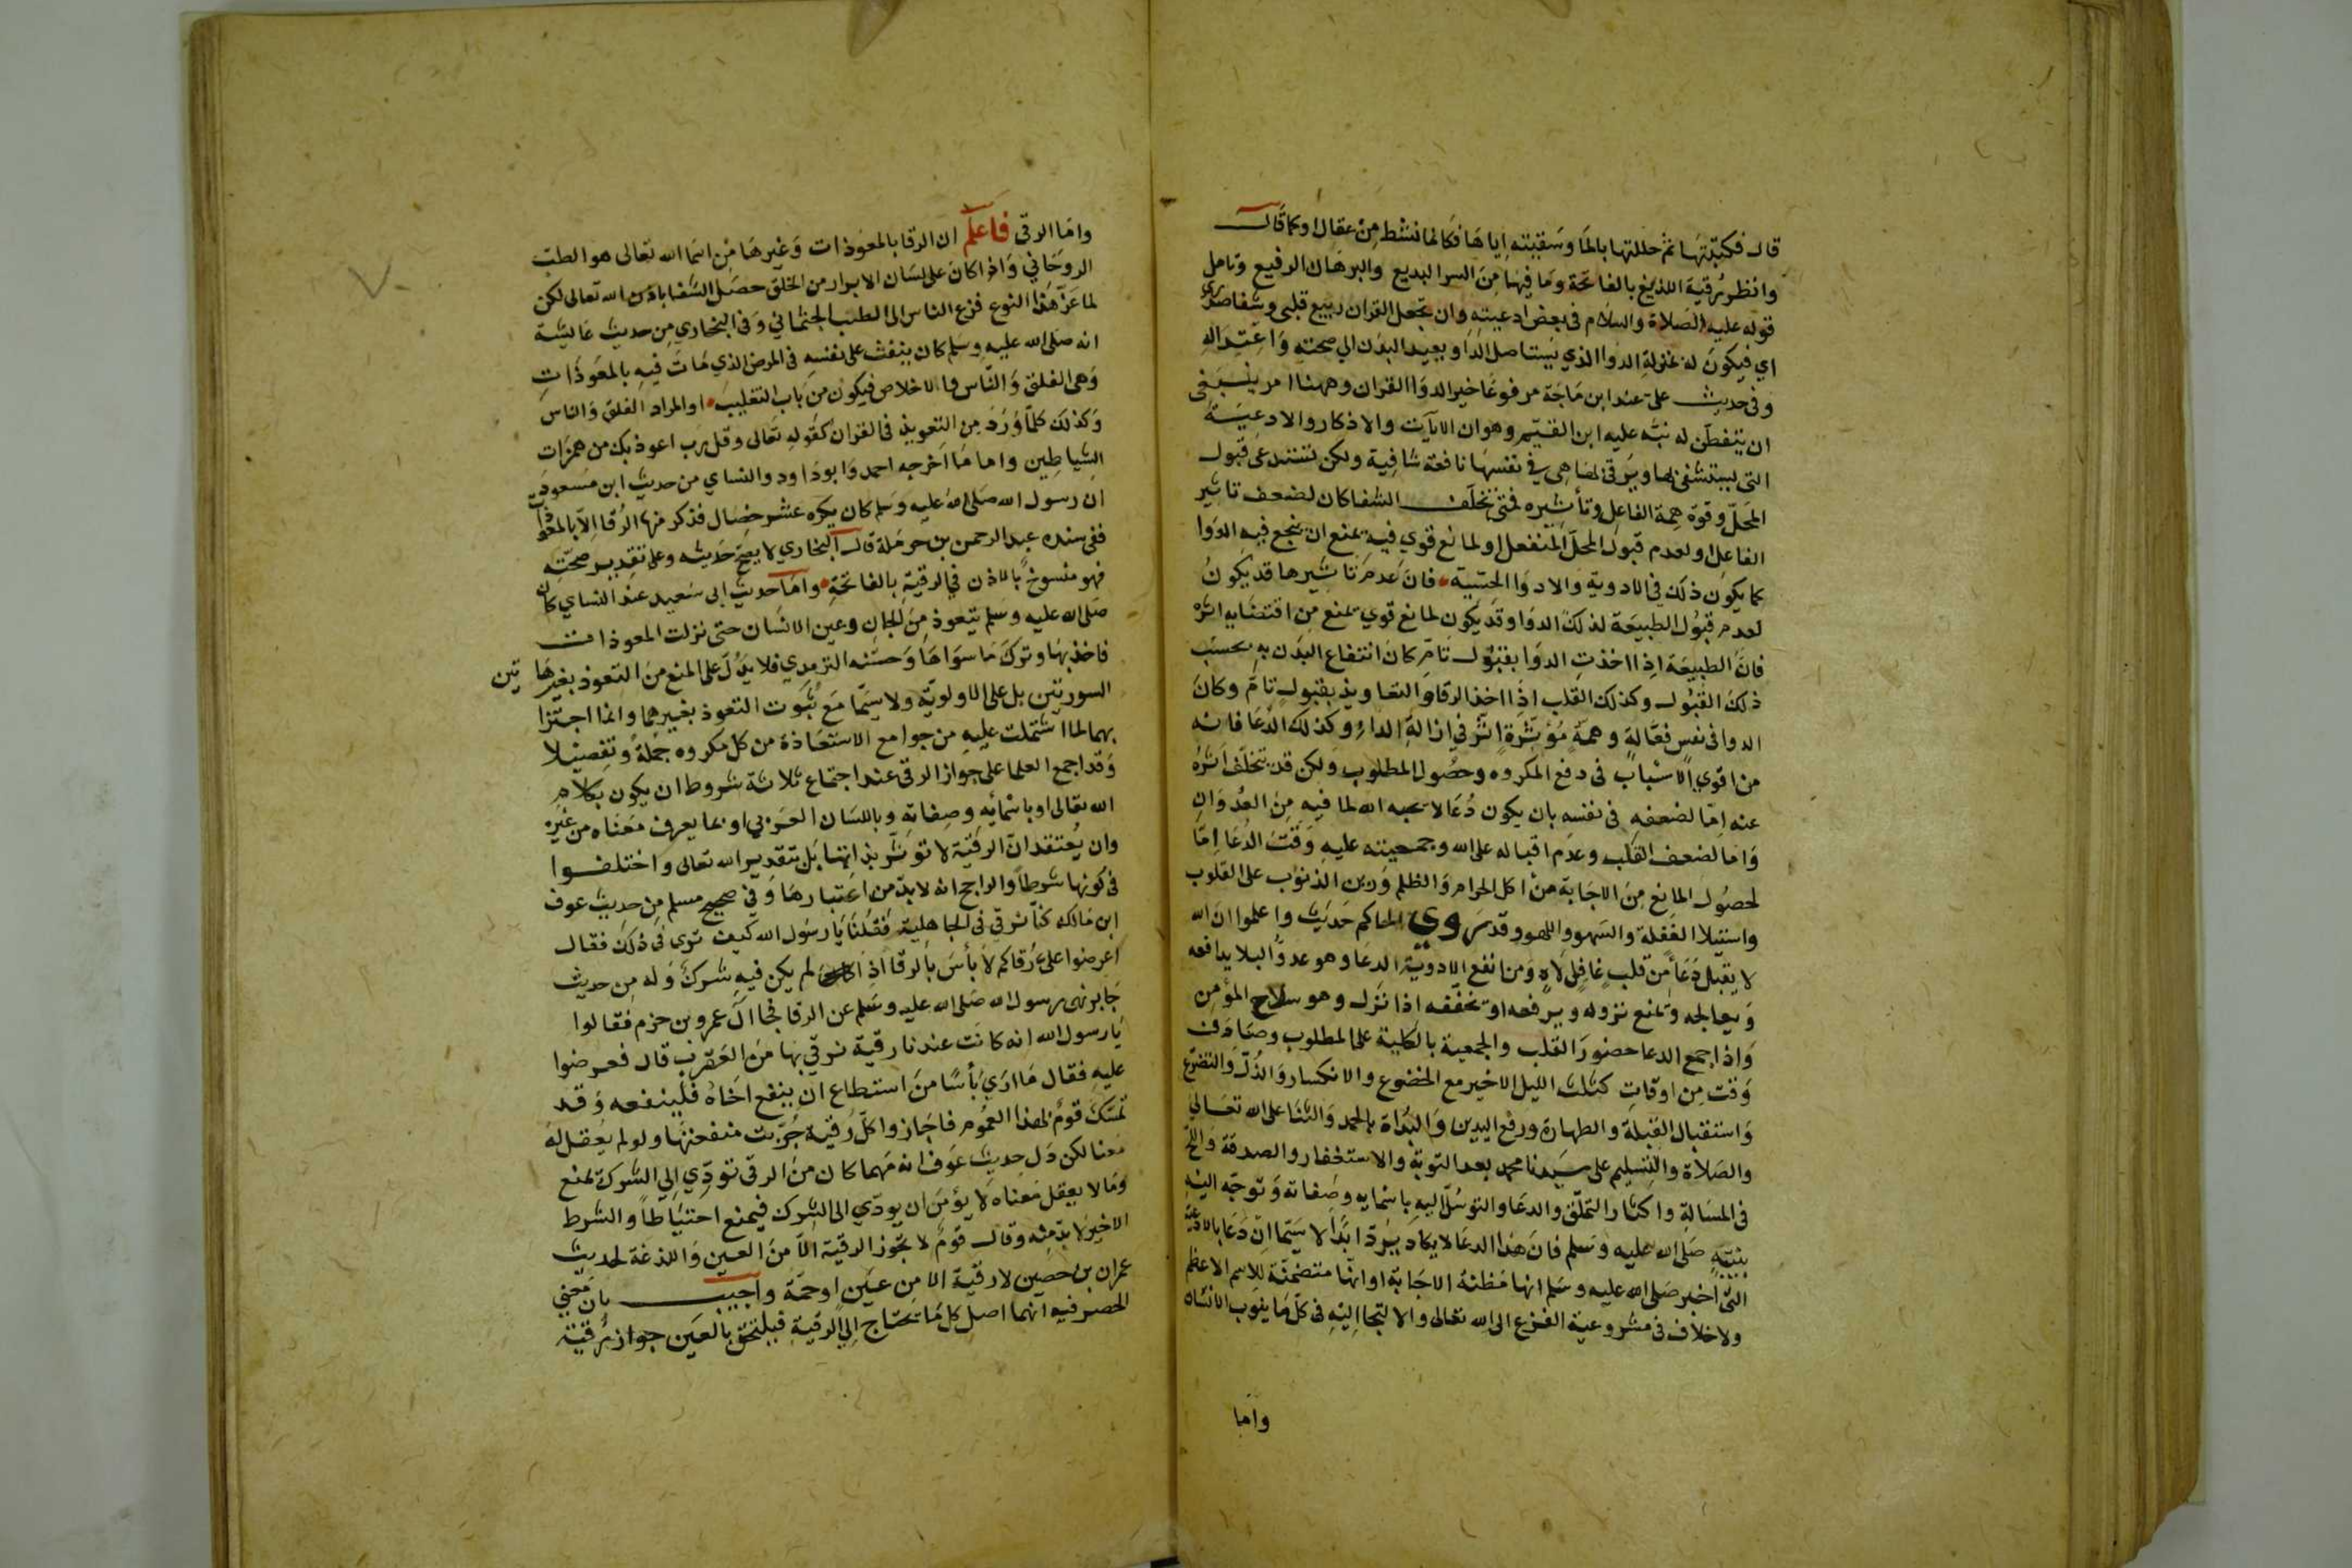 قال فكتبتها ثم حللتها بالما وسقيته اياها فكانما نشط من عقال او كما قال
وانظر رقية اللديغ بالفاتحة وما فيها من السر البديع والبرهان الرفيع وتامل
قوله عليه الصلاة والسلام في بعض ادعيته وان تجعل القران ربيع قلبي وشفا صدري
اي فيكون له بمنزلة الدوا الذي يستاصل الدا ويعيد البدن الي صحته واعتداله
وفي حديث علي عند ابن ماجة مرفوعا خير الدوا القران وههنا امر ينبغي
ان يتفطن له نبه عليه ابن القيم وهو ان الايات والاذكار والادعية
التي يستشفى بها ويرقى بها هي في نفسها نافعة شافية ولكن تستدعي قبول
المحل وقوة همة الفاعل وتأثيره فمتى تخلف الشفا كان لضعف تاثير
الفاعل او لعدم قبول المحل المنفعل او لمانع قوي فيه يمنع ان ينجع فيه الدوا
كما يكون ذلك في الادوية والادوا الحسية فان عدم تاثيرها قد يكون
لعدم قبول الطبيعة لذلك الدوا وقد يكون لمانع قوي يمنع من اقتضايه اثره
فان الطبيعة اذا اخذت الدوا بقبول تام كان انتفاع البدن به بحسب
ذلك القبول وكذلك القلب اذا اخذ الرقا والتعاويذ بقبول تام وكان
الدوا في نفس فعالة وهمة مؤثرة اثر في ازالة الداء وكذلك الدعا فانه
من اقوي الاسباب في دفع المكروه وحصول المطلوب ولكن قد يتخلف اثره
عنه اما لضعفه في نفسه بان يكون دعا لا يحبه الله لما فيه من العدوان
واما لضعف القلب وعدم اقباله على الله وجمعيته عليه وقت الدعا اما
لحصول المانع من الاجابة من اكل الحرام والظلم ورين الذنوب على القلوب
واستيلا الغفلة والسهو واللهو وقد روي الحاكم حديث واعلموا ان الله
لا يقبل دعأ من قلب غافل لاه ومن انفع الادوية الدعا وهو عدو البلا يدافعه
ويعالجه ويمنع نزوله ويرفعه او يخففه اذا نزل وهو سلاح المؤمن
واذا جمع الدعا حضور القلب والجمعية بالكلية على المطلوب وصادف
وقت من اوقات كثلث الليل الاخير مع الخضوع والانكسار والذل والتضرع
واستقبال القبلة والطهارة ورفع اليدين والبداة بالحمد والثنا على الله تعالي
والصلاة والتسليم على سيدنا محمد بعد التوبة والاستغفار والصدقة والح
في المسالة واكثار التملق والدعا والتوسل اليه باسمايه وصفاته وتوجه اليه
بنبيه صلى الله عليه وسلم فان هذا الدعا لا يكاد يرد ابدا لا سيما ان دعا بالادعية
التي اخبر صلى الله عليه وسلم انها مظنة الاجابة او انها متضمنة للاسم الاعظم
ولا خلاف في مشروعية الفزع الى الله تعالى والالتجا اليه في كل ما ينوب الانسان
واما
واما الرقى فاعلم ان الرقا بالمعوذات وغيرها من اسما الله تعالى هو الطب
الروحاني واذا كان على لسان الابرار من الخلق حصل الشفا باذن الله تعالى لكن
لما عز هذا النوع فزع الناس الى الطب الجثماني وفي البخاري من حديث عائشة
انه صلى الله عليه وسلم كان ينفث على نفسه في المرض الذي مات فيه بالمعوذات
وهي الفلق والناس والاخلاص فيكون من باب التغليب او المراد الفلق والناس
وكذلك كلما ورد من التعويذ في القران كقوله تعالى وقل رب اعوذ بك من همزات
الشياطين واما ما اخرجه احمد وابو داود والنساي من حديث ابن مسعود
ان رسول الله صلى الله عليه وسلم كان يكره عشر خصال فذكر منها الرقا الا بالمعوذات
ففي سنده عبد الرحمن بن حرملة قال البخاري لا يصح حديثه وعلى تقدير صحته
فهو منسوخ بالاذن في الرقية بالفاتحة واما حديث ابي سعيد عند النساي كان
صلى الله عليه وسلم يتعوذ من الجان وعين الانسان حتى نزلت المعوذات
فاخذ بها وترك ما سواها وحسنه الترمدي فلا يدل على المنع من التعوذ بغيرها تين
السورتين بل على الاولوية ولا سيما مع ثبوت التعوذ بغيرهما وانما اجتزا
بهما لما اشتملت عليه من جوامع الاستعاذة من كل مكروه جملة وتفصيلا
وقد اجمع العلما على جواز الرقى عند اجتماع ثلاثة شروط ان يكون بكلام
الله تعالى او باسمائه وصفاته وباللسان العربي او بما يعرف معناه من غيره
وان يعتقد ان الرقية لا تؤثر بذاتها بل بتقدير الله تعالى واختلفوا
في كونها شرطا والراجح انه لا بد من اعتبارها وفي صحيح مسلم من حديث عوف
ابن مالك كنا نرقي في الجاهلية فقلنا يا رسول الله كيف تري في ذلك فقال
اعرضوا على رقاكم لا بأس بالرقا اذا لم يكن فيه شرك وله من حديث
جابر نهى رسول الله صلى الله عليه وسلم عن الرقا فجا ال عمرو بن حزم فقالوا
يا رسول الله انه كانت عندنا رقية نرقي بها من العقرب قال فعرضوا
عليه فقال ما اري بأسا من استطاع ان ينفع اخاه فلينفعه وقد
تمسك قوم بهذا العموم فاجازوا كل رقية جربت منفعتها ولو لم يعقل له
معنا لكن دل حديث عوف انه مهما كان من الرقى تودي الي الشرك تمنع
وما لا يعقل معناه لا يؤمن ان يودي الى الشرك فيمنع احتياطا والشرط
الاخير لا بد منه وقال قوم لا تجوز الرقية الا من العين واللذغة لحديث
عمران بن حصين لا رقية الا من عين او حمة واجيب بان معني
الحصر فيه انهما اصل كل ما يحتاج الي الرقية فيلتحق بالعين جواز رقية